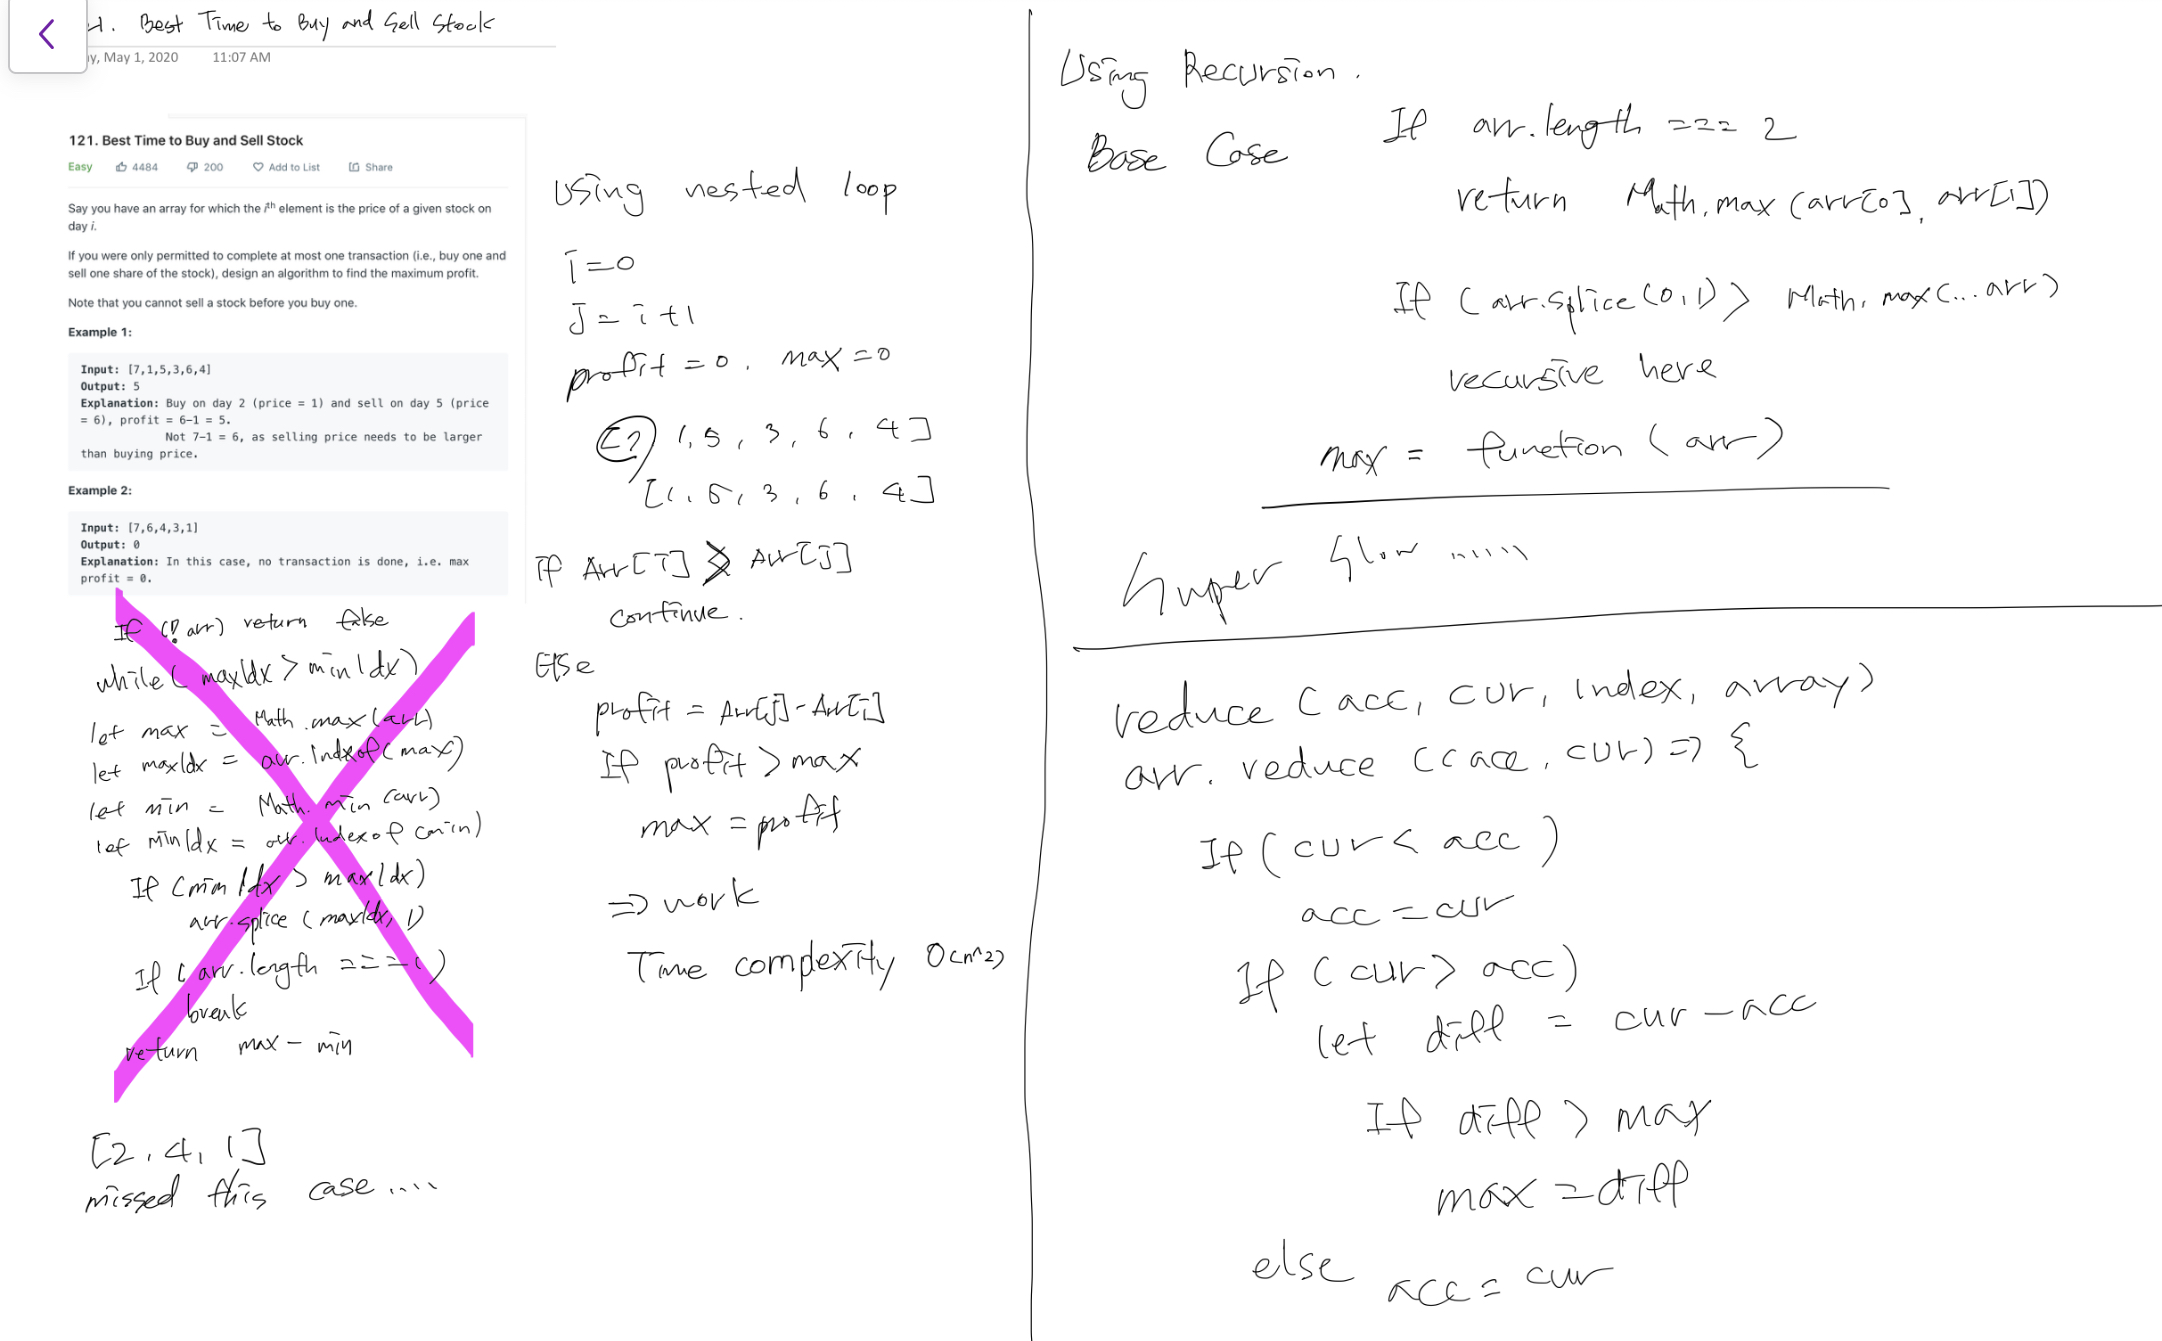 1. Best Time to Buy and Sell Stock
y, May 1, 2020 11:07 AM
121. Best Time to Buy and Sell Stock
Easy 4484 200 Add to List Share
Say you have an array for which the ith element is the price of a given stock on
day i.
If you were only permitted to complete at most one transaction (i.e., buy one and
sell one share of the stock), design an algorithm to find the maximum profit.
Note that you cannot sell a stock before you buy one.
Example 1:
Input: [7,1,5,3,6,4]
Output: 5
Explanation: Buy on day 2 (price = 1) and sell on day 5 (price
= 6), profit = 6-1 = 5.
Not 7-1 = 6, as selling price needs to be larger
than buying price.
Example 2:
Input: [7,6,4,3,1]
Output: 0
Explanation: In this case, no transaction is done, i.e. max
profit = 0.
If (! arr) return false
while ( maxIdx > minIdx)
let max = Math.max(arr)
let maxIdx = arr.Indexof(max)
let min = Math.min (arr)
let minIdx = arr.Indexof (min)
If (minIdx > maxIdx)
arr.splice (maxIdx, 1)
If (arr.length === 1)
break
return max - min
[2, 4, 1]
missed this case ....
Using nested loop
i=0
J = i+1
profit = 0, max = 0
[7 1, 5, 3, 6, 4]
[1, 5, 3, 6, 4]
if Arr[i] > Arr[J]
continue.
Else
profit = Arr[j] - Arr[i]
If profit > max
max = profit
=> work
Time complexity O(n^2)
Using Recursion.
Base Case If arr.length === 2
return Math.max (arr[0], arr[1])
If (arr.splice(0,1) > Math.max(...arr)
recursive here
max = function (arr)
Super Slow ......
reduce (acc, cur, index, array)
arr. reduce ((acc, cur) => {
If (cur < acc)
acc = cur
If (cur > acc)
let diff = cur - acc
If diff > max
max = diff
else acc = cur